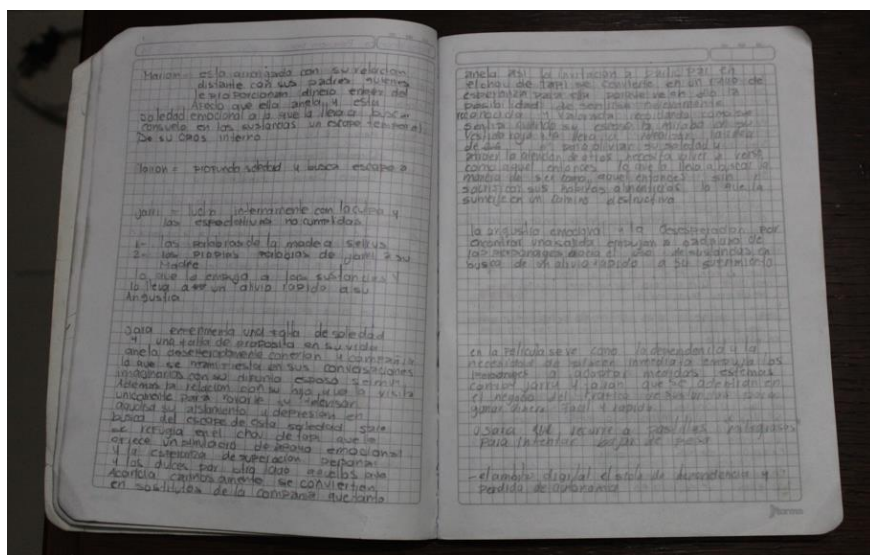 Marion = esta acongojada con su relacion
distante con sus padres quienes
le proporcionan dinero enves del
Afecto que ella anela, y esta
soledad emocional a la que la lleva a buscar
consuelo en las sustancias un escape temporal
De su caos interno
profunda soledad y busca escape a
lucha internamente con la culpa y
las espectativas no cumplidas
1- las palabras de la madre a
2- las propias palabras de a su
Madre
lo que lo empuja a las sustancias y
lo lleva a un alivio rapido a su
Angustia.
Sara enfrenta una falta de soledad
y una falta de proposito en su vida
anela desesperadamente conexion y compañia
lo que se manifiesta en sus conversaciones
imaginarias con su difunto esposo
Ademas la relacion con su hijo que la visita
unicamente para robarle su television
agudisa su aislamiento y depresion en
busca del escape de esta soledad Sara
se refugia en el chou de tapi que le
ofrece un simulacro de apoyo emocional
y la esperanza de superacion personal
y los dulces por otro lado aquellos que
Acaricia cariñosamente se convierten
en sostitutos de la compañia que tanto
anela asi la invitacion a participar en
el chou de tapi se convierte en un
esperanza para ella porque ve en ella la
posibilidad de sentirse nuevamente
reconocida y valorada
vestido rojo
para aliviar su soledad y
atraer la atencion de otros necesita volver a verse
como aquel entonces lo que la lleva a buscar la
manera de ser como aquel entonces sin
sacrificar sus habitos alimenticios lo que la
sumerje en un camino destructivo
la angustia emocional y la desesperacion por
encontrar una salida empujan a cada uno de
los personajes hacia el uso de sustancias en
busca de un alivio rapido a su sufrimiento
en la pelicula se ve como la dependencia y la
necesidad de inmediata empuja los
personajes a adoptar medidas extremas
como que se adentran en
el negocio del trafico de sustancias para
ganar dinero facil y rapido.
o Sara que recurre a pastillas "milagrosas"
para intentar bajar de peso
- el ambito digital el de dependencia y
perdida de autonomia